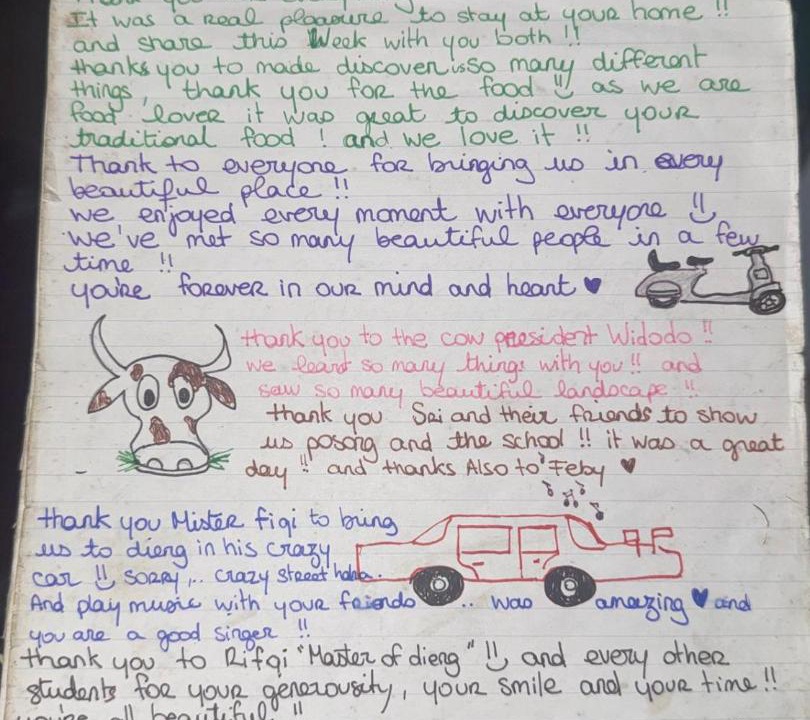 It was a real pleasure to stay at your home !!
and share this Week with you both !!
thanks you to made discover us so many different
things, thank you for the food !! as we are
food lover it was great to discover your
traditional food ! and we love it !!
Thank to everyone for bringing us in every
beautiful place !!
we enjoyed every moment with everyone !!
we've met so many beautiful people in a few
time !!
you're forever in our mind and heart ♥
thank you to the cow president Widodo !!
we leart so many things with you !! and
saw so many beautiful landscape !!
thank you Sai and their friends to show
us posong and the school !! it was a great
day !! and thanks Also to Feby ♥
thank you Mister fiqi to bring
us to dieng in his crazy
car !! sorry ... crazy street haha.
And play music with your friends .. was amazing ♥ and
you are a good singer !!
thank you to Rifqi "Master of dieng" !! and every other
students for your generousity, your smile and your time !!
you're all beautiful !!